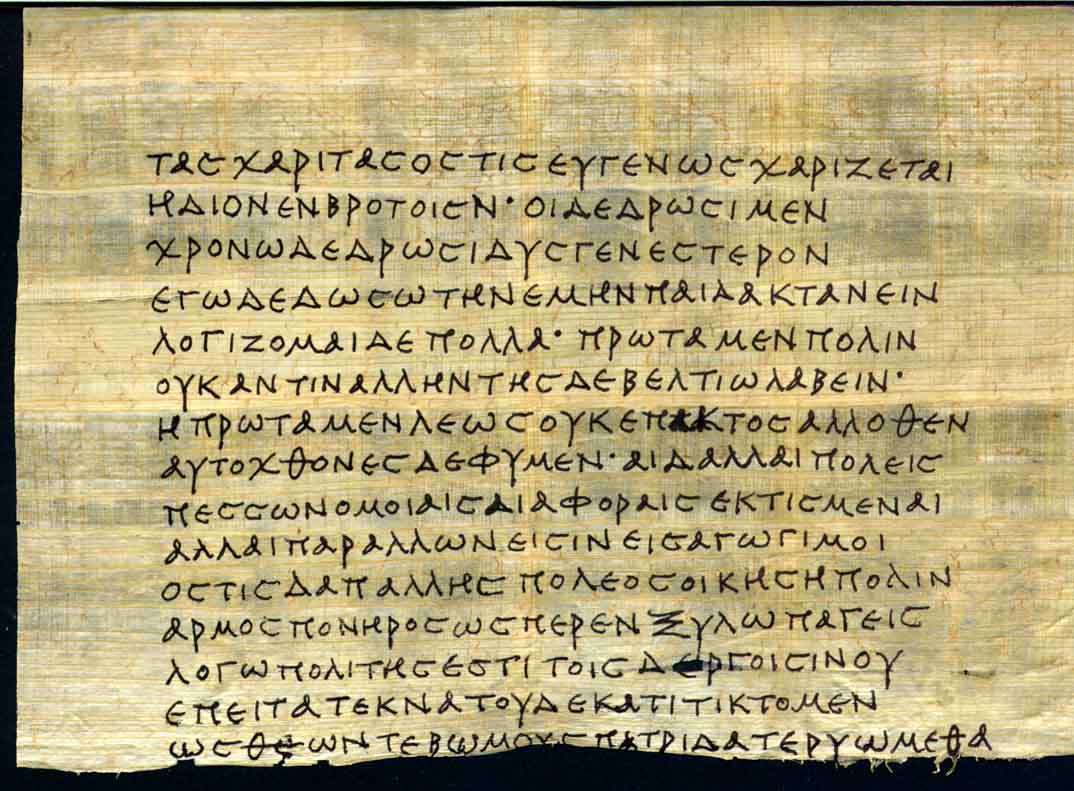 ΤΑϹΧΑΡΙΤΑϹΟϹΤΙϹΕΥΓΕΝΩϹΧΑΡΙΖΕΤΑΙ
ΗΔΙΟΝΕΝΒΡΟΤΟΙϹΝ· ΟΙΔΕΔΡΩϹΙΜΕΝ
ΧΡΟΝΩΔΕΔΡΩϹΙΔΥϹΓΕΝΕϹΤΕΡΟΝ
ΕΓΩΔΕΔΩϹΩΤΗΝΕΜΗΝΠΑΙΔΑΚΤΑΝΕΙΝ
ΛΟΓΙΖΟΜΑΙΔΕΠΟΛΛΑ· ΠΡΩΤΑΜΕΝΠΟΛΙΝ
ΟΥΚΑΝΤΙΝΑΛΛΗΝΤΗϹΔΕΒΕΛΤΙΩΛΑΒΕΙΝ·
ΗΠΡΩΤΑΜΕΝΛΕΩϹΟΥΚΕΠΑΚΤΟϹΑΛΛΟΘΕΝ
ΑΥΤΟΧΘΟΝΕϹΔΕΦΥΜΕΝ· ΑΙΔΑΛΛΑΙΠΟΛΕΙϹ
ΠΕϹϹΩΝΟΜΟΙΑΙϹΔΙΑΦΟΡΑΙϹΕΚΤΙϹΜΕΝΑΙ
ΑΛΛΑΙΠΑΡΑΛΛΩΝΕΙϹΙΝΕΙϹΑΓΩΓΙΜΟΙ
ΟϹΤΙϹΔΑΠΑΛΛΗϹΠΟΛΕΟϹΟΙΚΗϹΗΠΟΛΙΝ
ΑΡΜΟϹΠΟΝΗΡΟϹΩϹΠΕΡΕΝΞΥΛΩΠΑΓΕΙϹ
ΛΟΓΩΠΟΛΙΤΗϹΕϹΤΙΤΟΙϹΔΕΡΓΟΙϹΙΝΟΥ
ΕΠΕΙΤΑΤΕΚΝΑΤΟΥΔΕΚΑΤΙΤΙΚΤΟΜΕΝ
ΩϹΘΕΩΝΤΕΒΩΜΟΥϹΠΑΤΡΙΔΑΤΕΡΥΩΜΕΘΑ